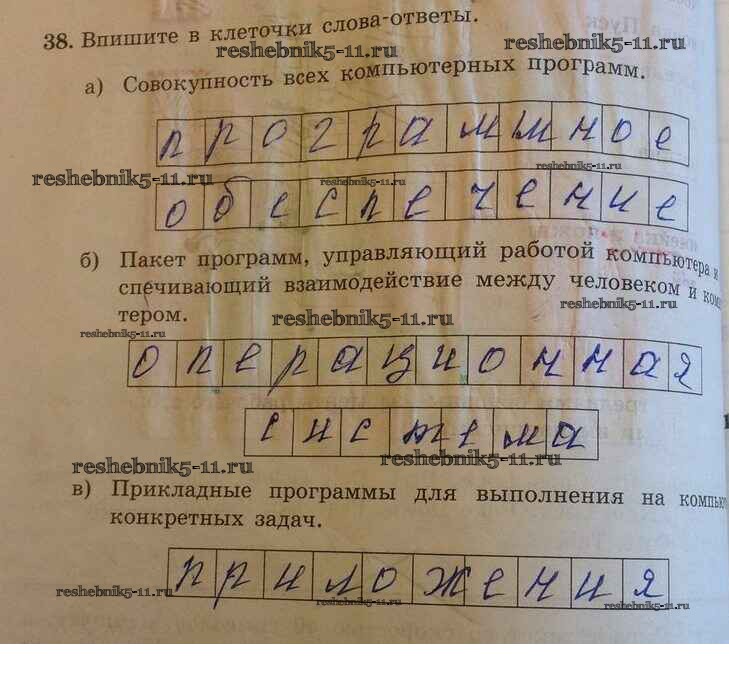 38. Впишите в клеточки слова-ответы.
reshebnik5-11.ru reshebnik5-11.ru
а) Совокупность всех компьютерных программ.
программное
reshebnik5-11.ru reshebnik5-11.ru reshebnik5-11.ru
обеспечение
б) Пакет программ, управляющий работой компьютера и
спечивающий взаимодействие между человеком и ком
reshebnik5-11.ru
тером.
reshebnik5-11.ru reshebnik5-11.ru
операционная
система
reshebnik5-11.ru reshebnik5-11.ru
в) Прикладные программы для выполнения на компью
конкретных задач.
приложения
reshebnik5-11.ru reshebnik5-11.ru reshebnik5-11.ru